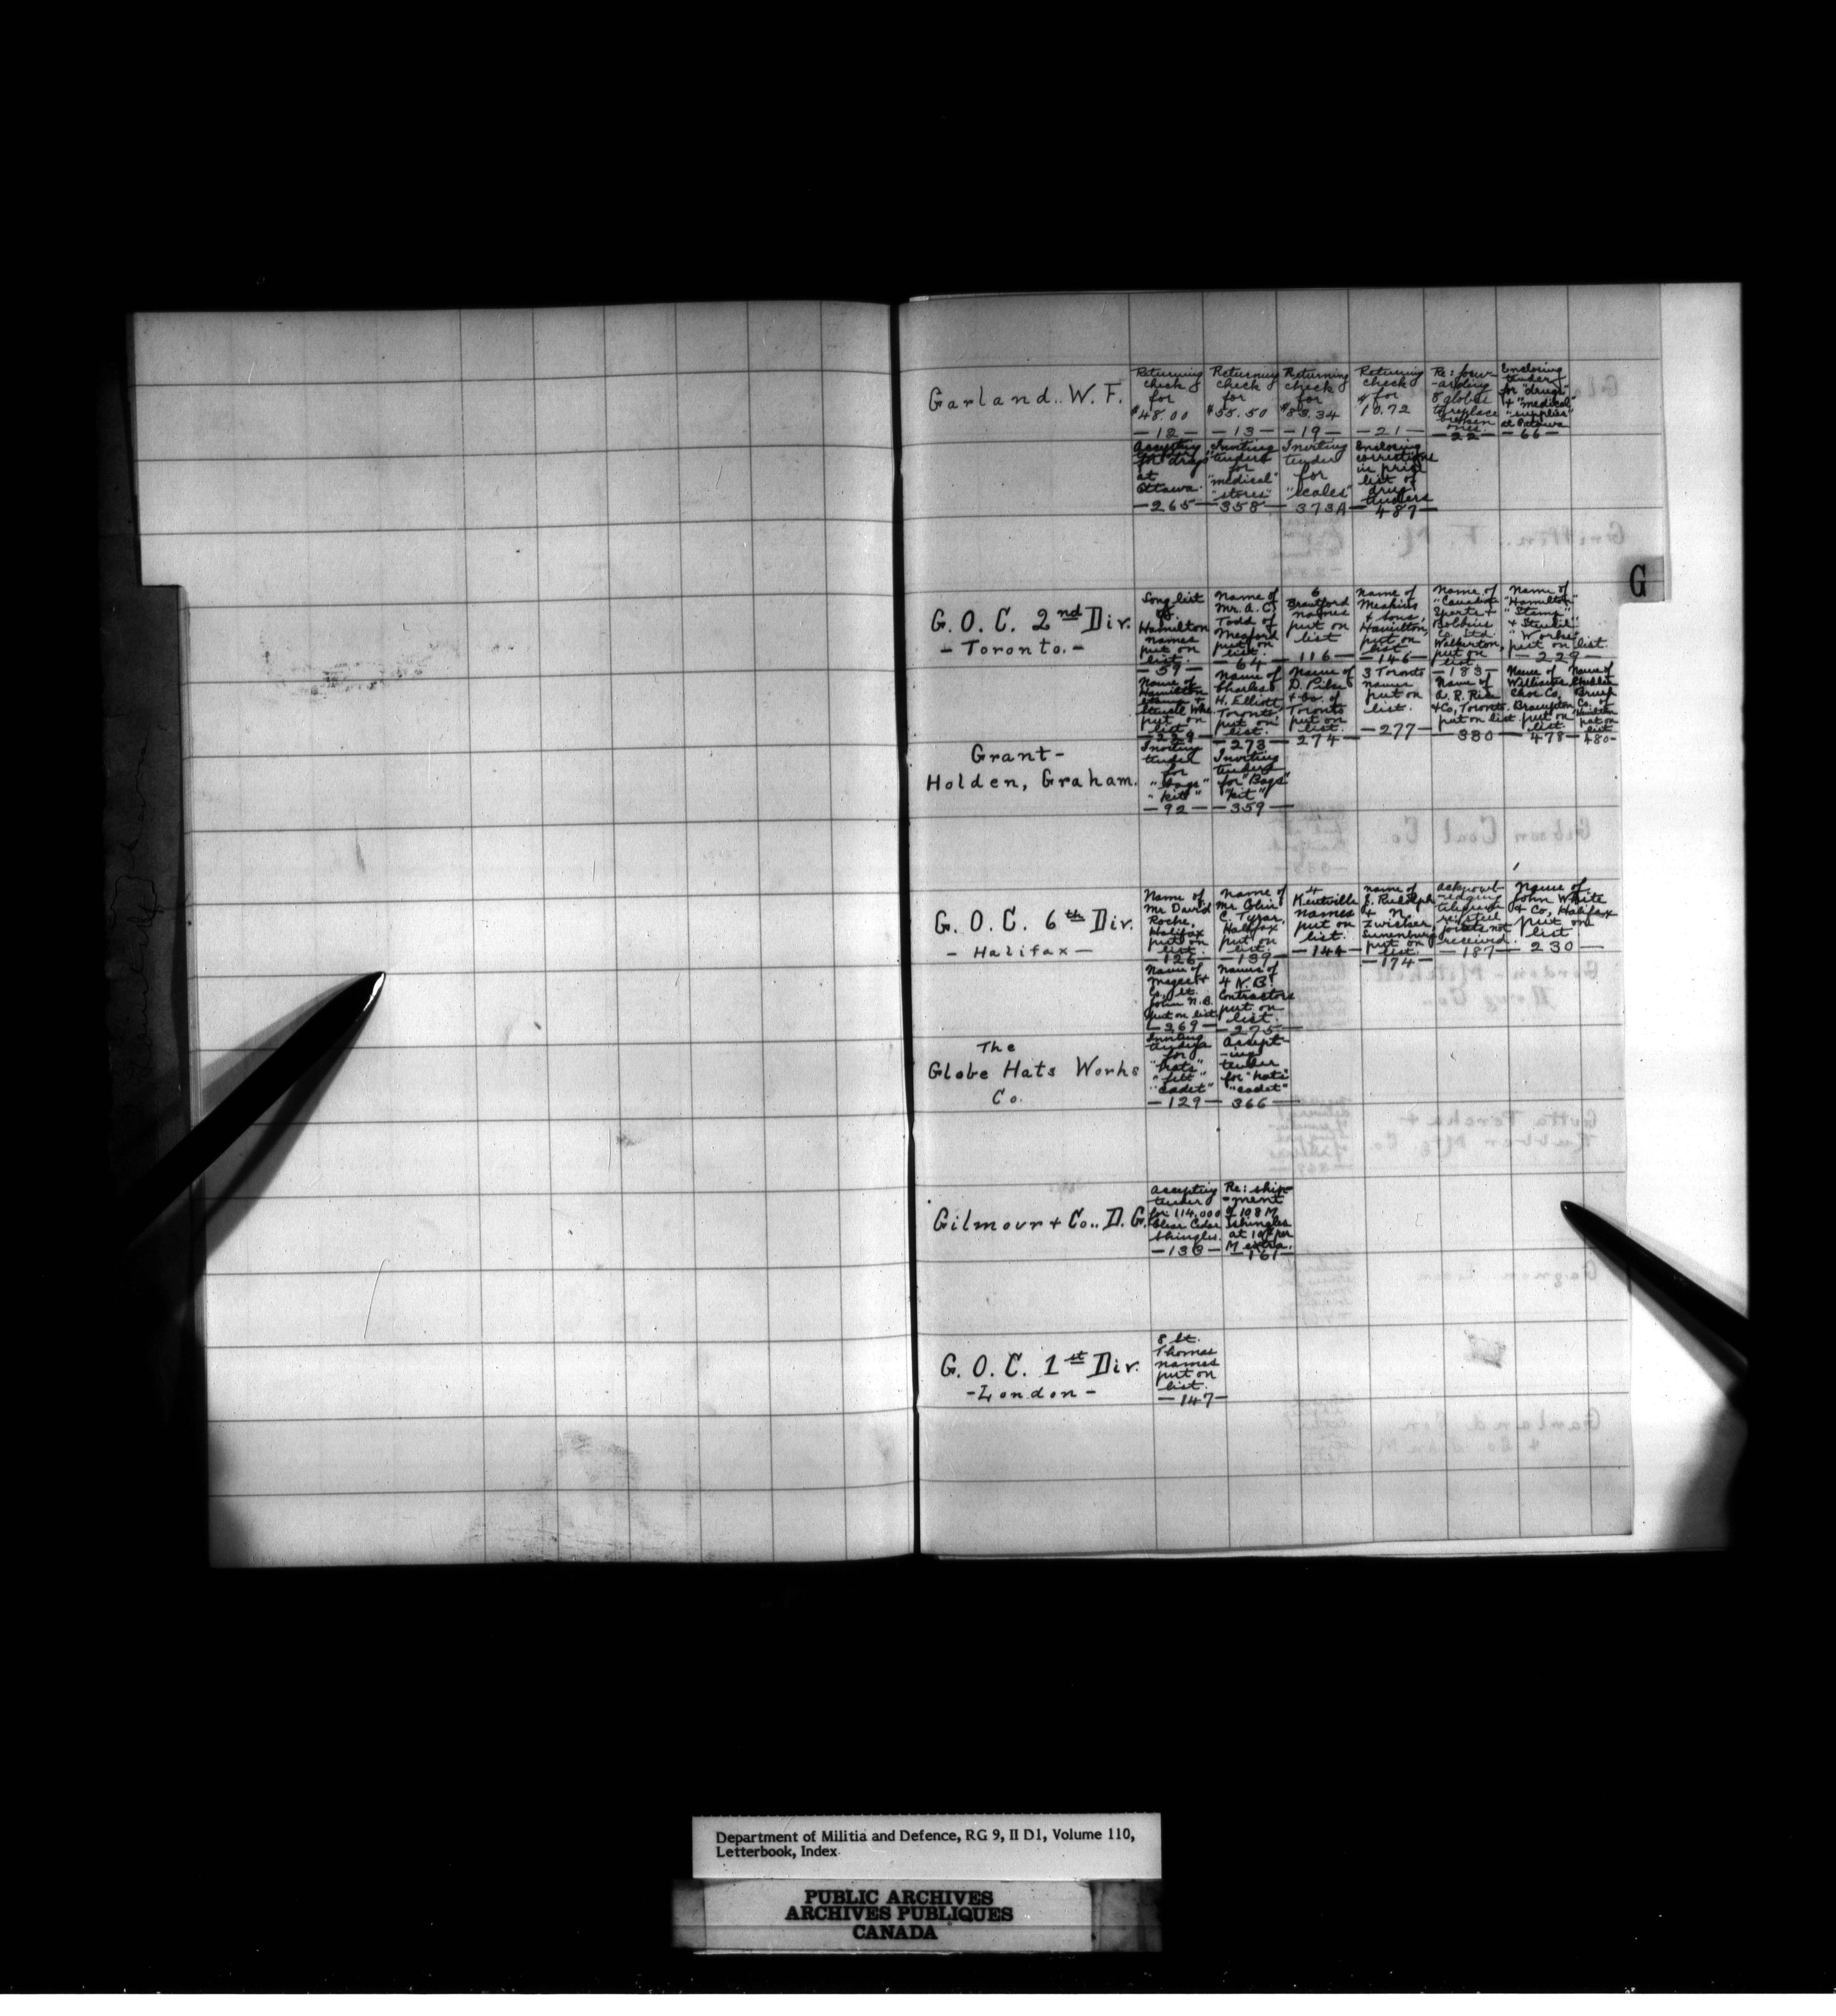 Garland.. W. F.
Returning
check
for
$48.00
—12—
Returning
check
for
$55.50
—13—
Returning
check
for
$83.34
—19—
Returning
check
for
10.72
—21—
Re: forw
-arding
8 globes
to replace
broken
ones.
—22—
Enclosing
tender
for "drugs"
+ "medical"
"supplies"
at Ottawa
—66—
Accepting
for drugs
at
Ottawa.
—265—
Inviting
tenders
for
"medical"
"stores"
—358—
Inviting
tender
for
"scales"
—373A—
Enclosing
corrections
in price
list of
drug
tenders
—487—
G
G. O. C. 2nd Div.
- Toronto. -
Long list
of
Hamilton
names
put on
list.
—59—
Name of
Mr. A. C.
Todd of
Meaford
put on
list.
—64—
6
Brantford
names
put on
list
—116—
Name of
Meakins
& Sons,
Hamilton,
put on
list.
—146—
Name of
"Canadian
Sports +
Bobbins
Co. Ltd.
Walkerton,
put on
list.
—183—
Name of
"Hamilton"
"Stamp"
+ Stencil"
"Works"
put on list.
—229—
Name of
Hamilton
Stamp +
Stencil Wks.
put on
list
—229—
Name of
Charles
H. Elliott,
Toronto,
put on
list.
—273—
Name of
D. Pike
+ Co. of
Toronto
put on
list.
—274—
3 Toronto
names
put on
list.
—277—
Name of
+ Co, Toronto.
put on list.
—380—
Name of
Williams
Shoe Co,
Brampton
put on
list
—478—
Name of
Co. of
Hamilton
put on
list
480-
Grant-
Holden, Graham.
Inviting
tender
for
"bags"
"kit"
—92—
Inviting
tenders
for "Bags"
"kit"
—359—
G. O. C. 6th Div.
- Halifax -
Name of
Mr David
Roche,
Halifax
put on
list.
—126—
Name of
Mr. Colin
C. Tyrar,
Halifax
put on
list.
—139—
4
Kentville
names
put on
list.
—144—
Name of
J. Rudolph
+ N.
Zwicker,
Lunenburg
put on
list.
—174—
Acknowl-
-edging
telegram
re: steel
joists not
received.
—187—
Name of
John White
& Co, Halifax
put on
list
—230—
Name of
Magee +
Co, St.
John N.B.
put on list
—269—
Names of
4 N. B.
Contractors
put on
list.
—275—
The
Globe Hats Works
Co.
Inviting
tenders
for
"hats"
"felt"
"cadet"
—129—
Accept-
-ing
tender
for "hats"
"cadet"
366—
Gilmour + Co.. D. G.
Accepting
tender
for 114,000
Clear Cedar
Shingles.
—138—
Re: ship-
-ment
of 108 M
shingles
at 10¢ per
M extra.
—161
G. O. C. 1st Div.
-London-
8 St.
Thomas
names
put on
list.
—147—
Department of Militia and Defence, RG 9, II D1, Volume 110,
Letterbook, Index.
PUBLIC ARCHIVES
ARCHIVES PUBLIQUES
CANADA